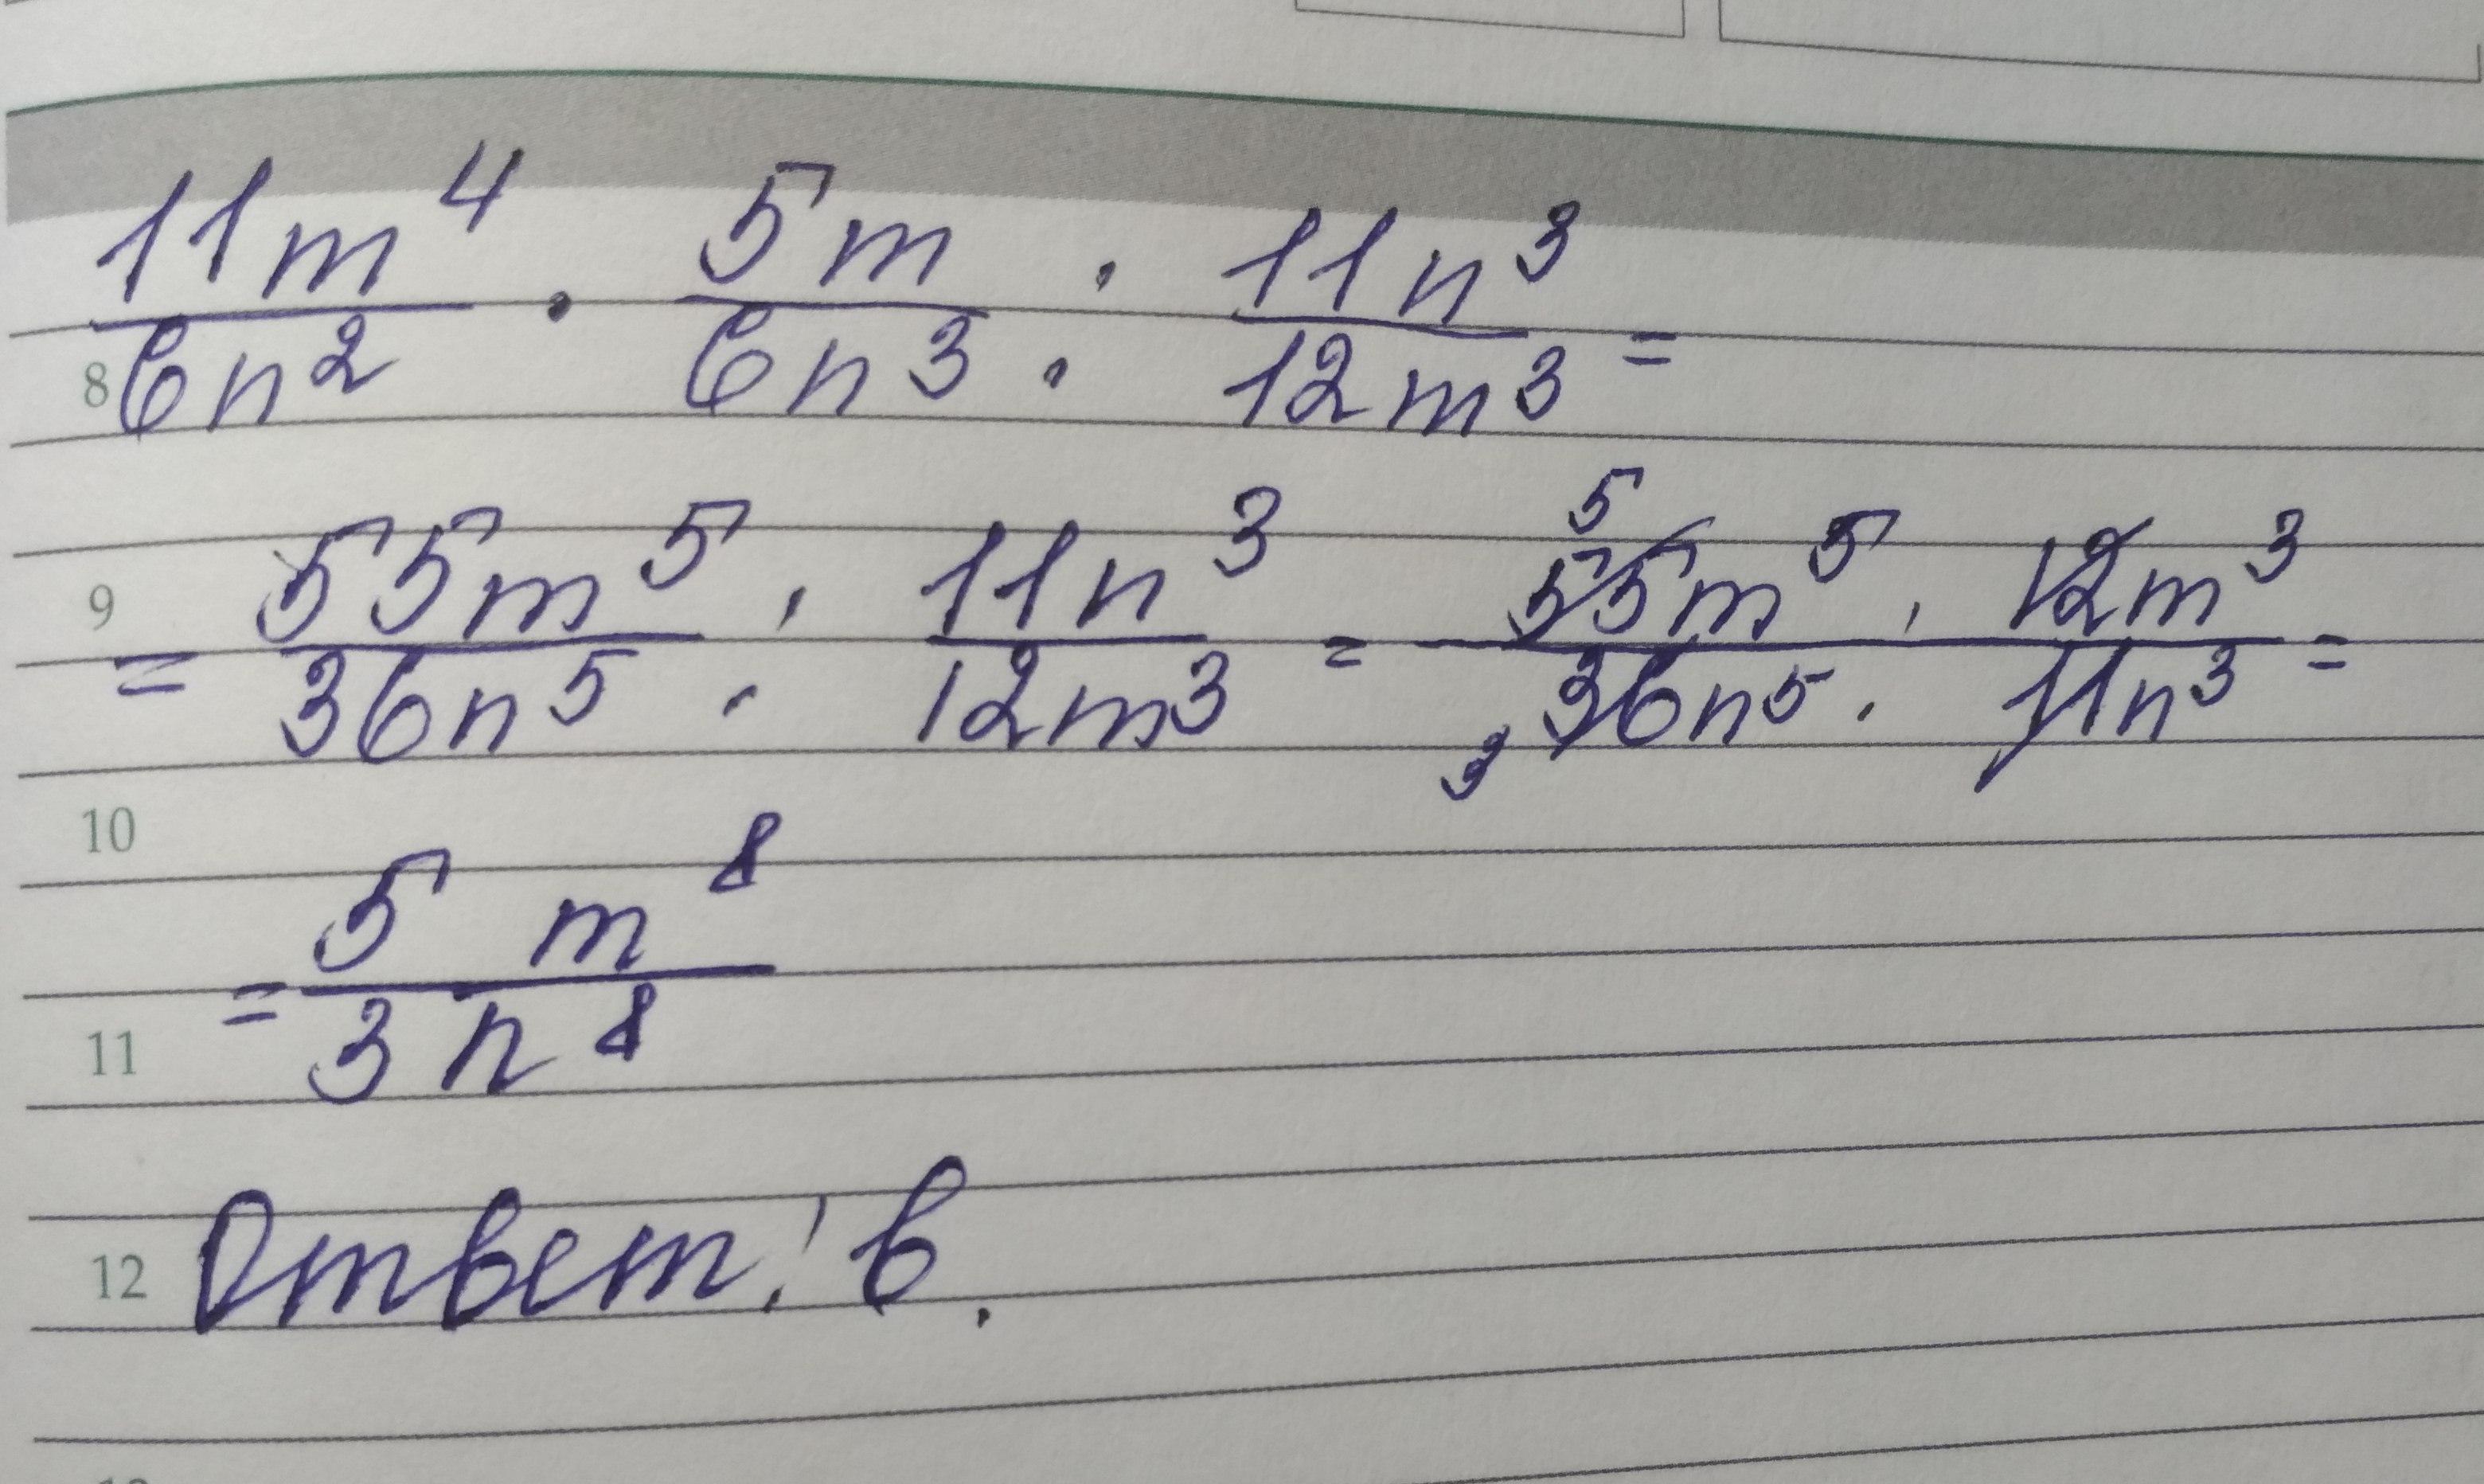 11m⁴/6n² · 5m/6n³ : 11n³/12m³ =
8
9
= 55m⁵/36n⁵ : 11n³/12m³ = 55m⁵ · 12m³/36n⁵ · 11n³ =
5
3
10
= 5 m⁸/3 n⁸
11
12 Ответ: в.